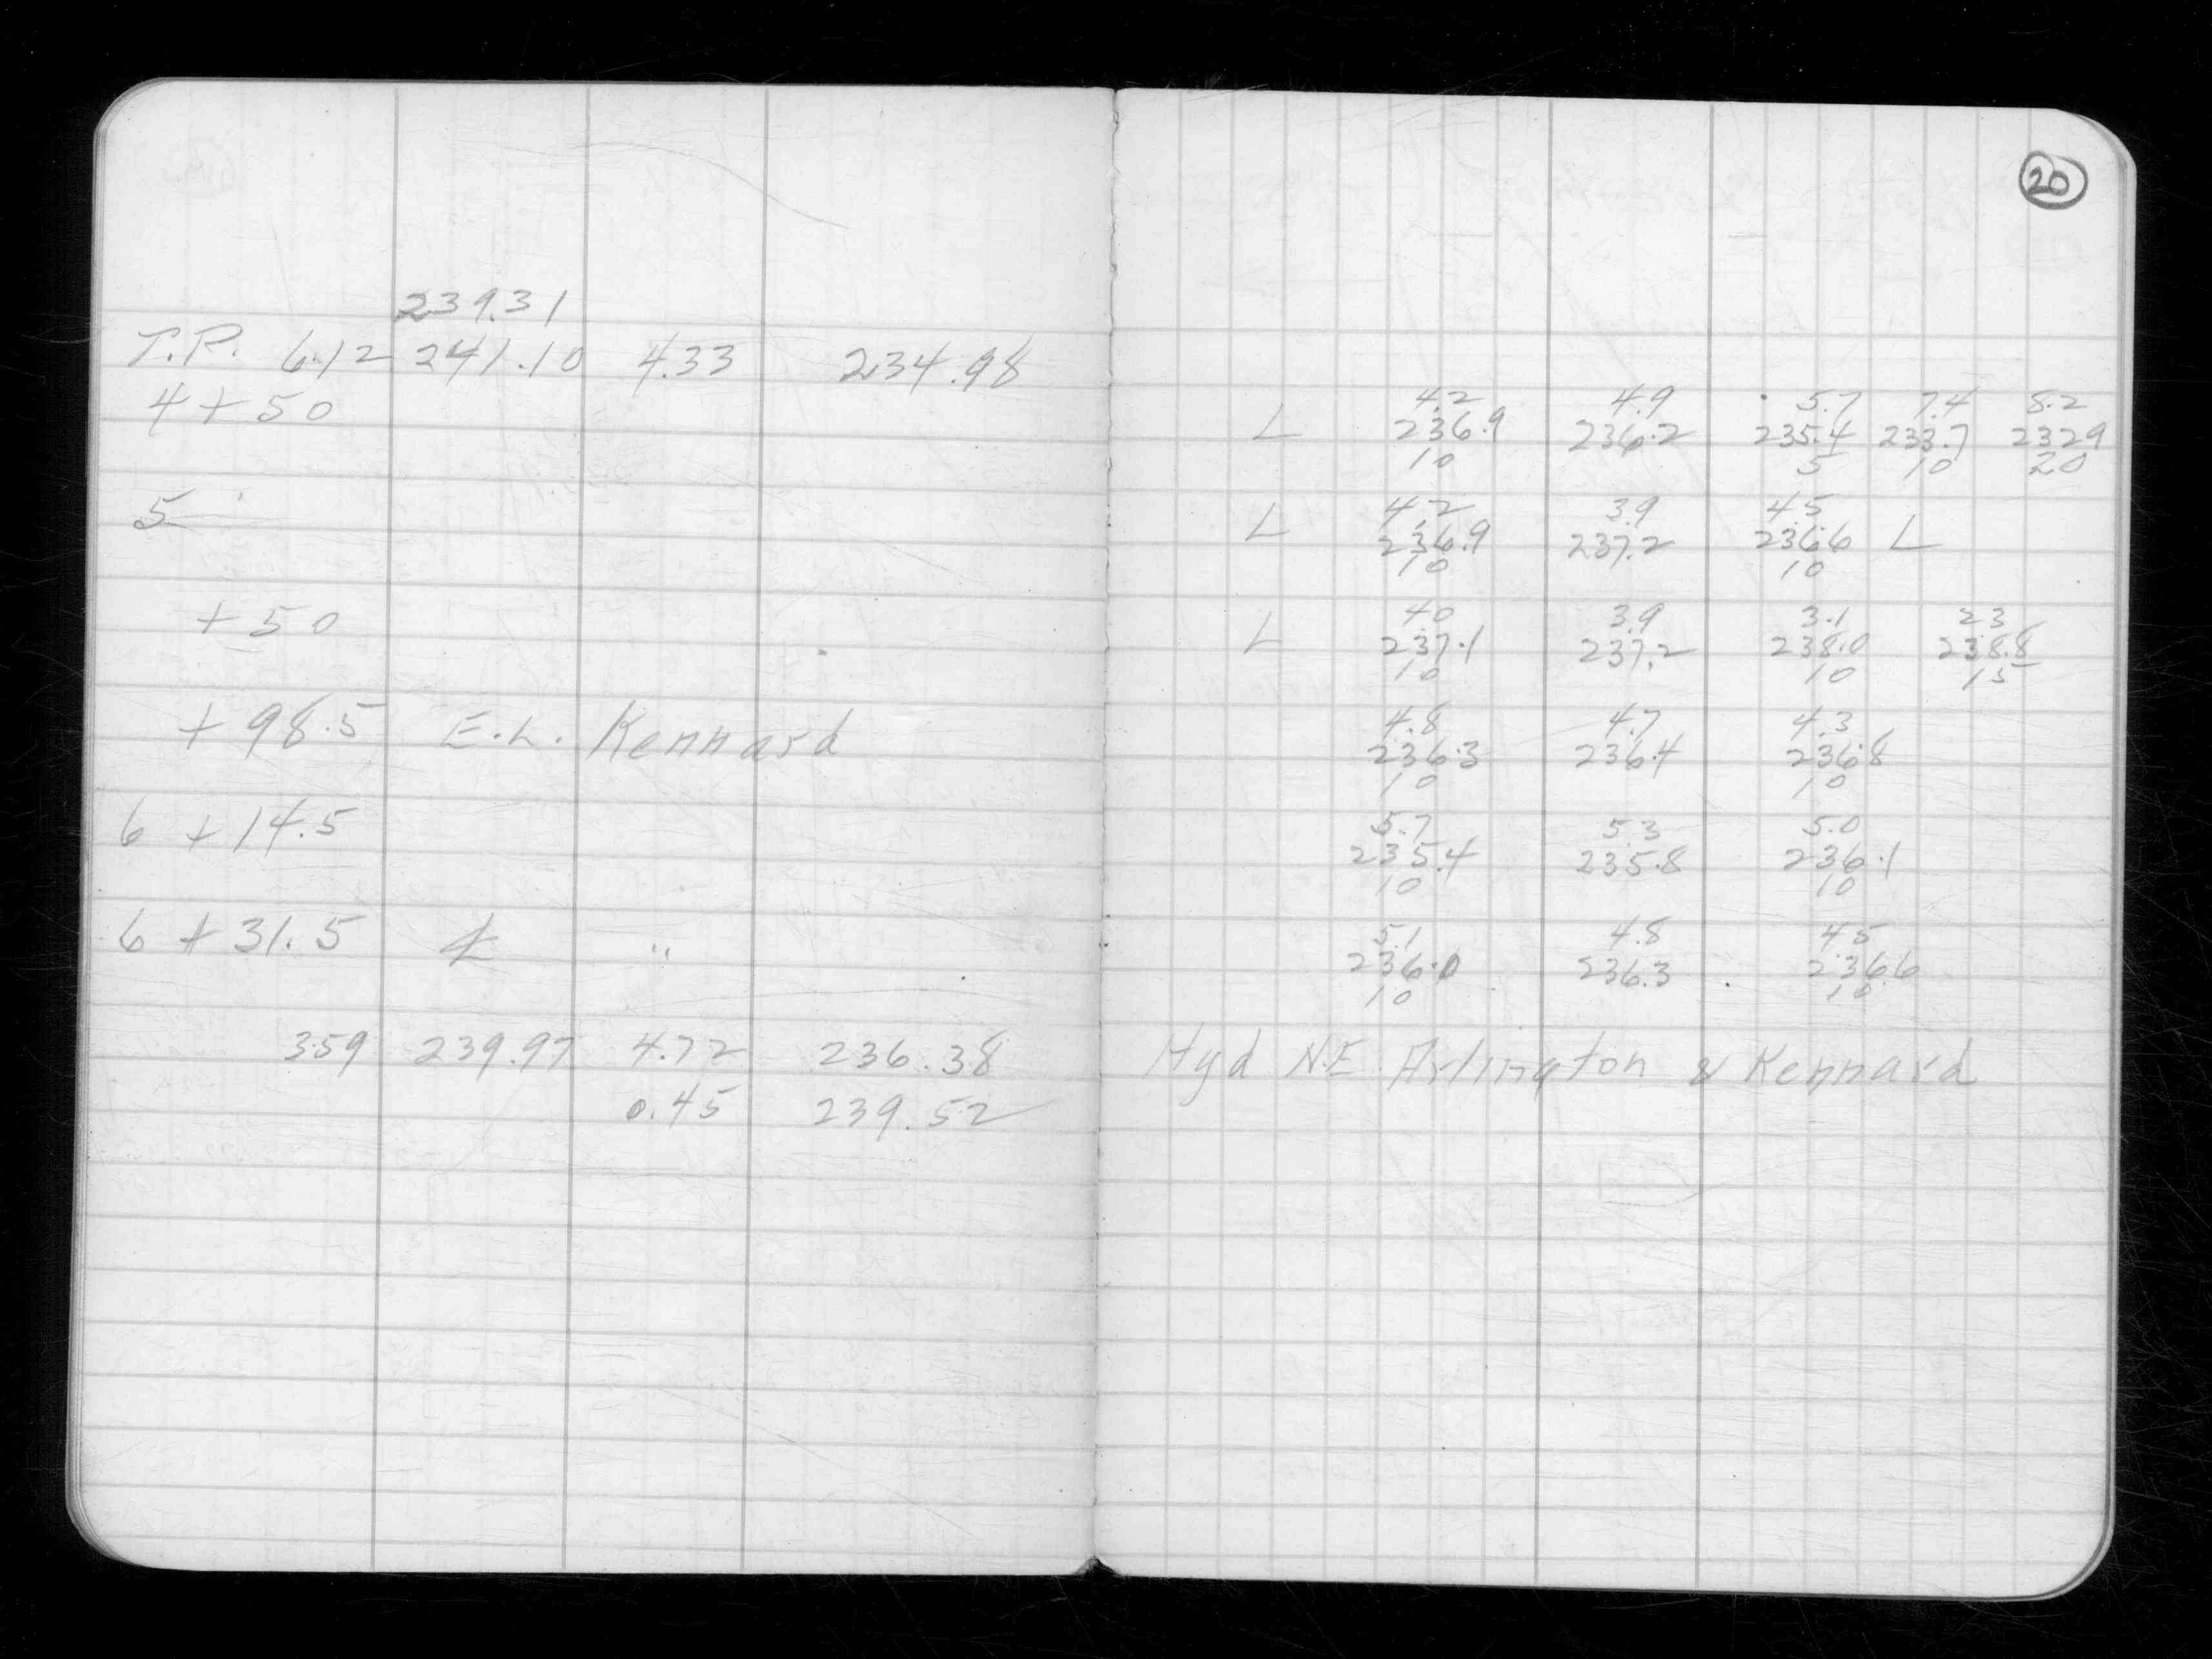 239.31
T.P. 6.12 241.10 4.33 234.98
4+50
5
+50
+98.5 E.L. Kennard
6 +14.5
6 +31.5 ℄ "
3.59 239.97 4.72 236.38
0.45 239.52
20
4.2 4.9 5.7 7.4 8.2
L 236.9 236.2 235.4 233.7 232.9
10 5 10 20
4.2 3.9 4.5
L 236.9 237.2 236.6 L
10 10
4.0 3.9 3.1 2.3
L 237.1 237.2 238.0 238.8
10 10 15
4.8 4.7 4.3
236.3 236.4 236.8
10 10
5.7 5.3 5.0
235.4 235.8 236.1
10 10
5.1 4.8 4.5
236.0 236.3 236.6
10 10
Hyd N.E. Arlington & Kennard